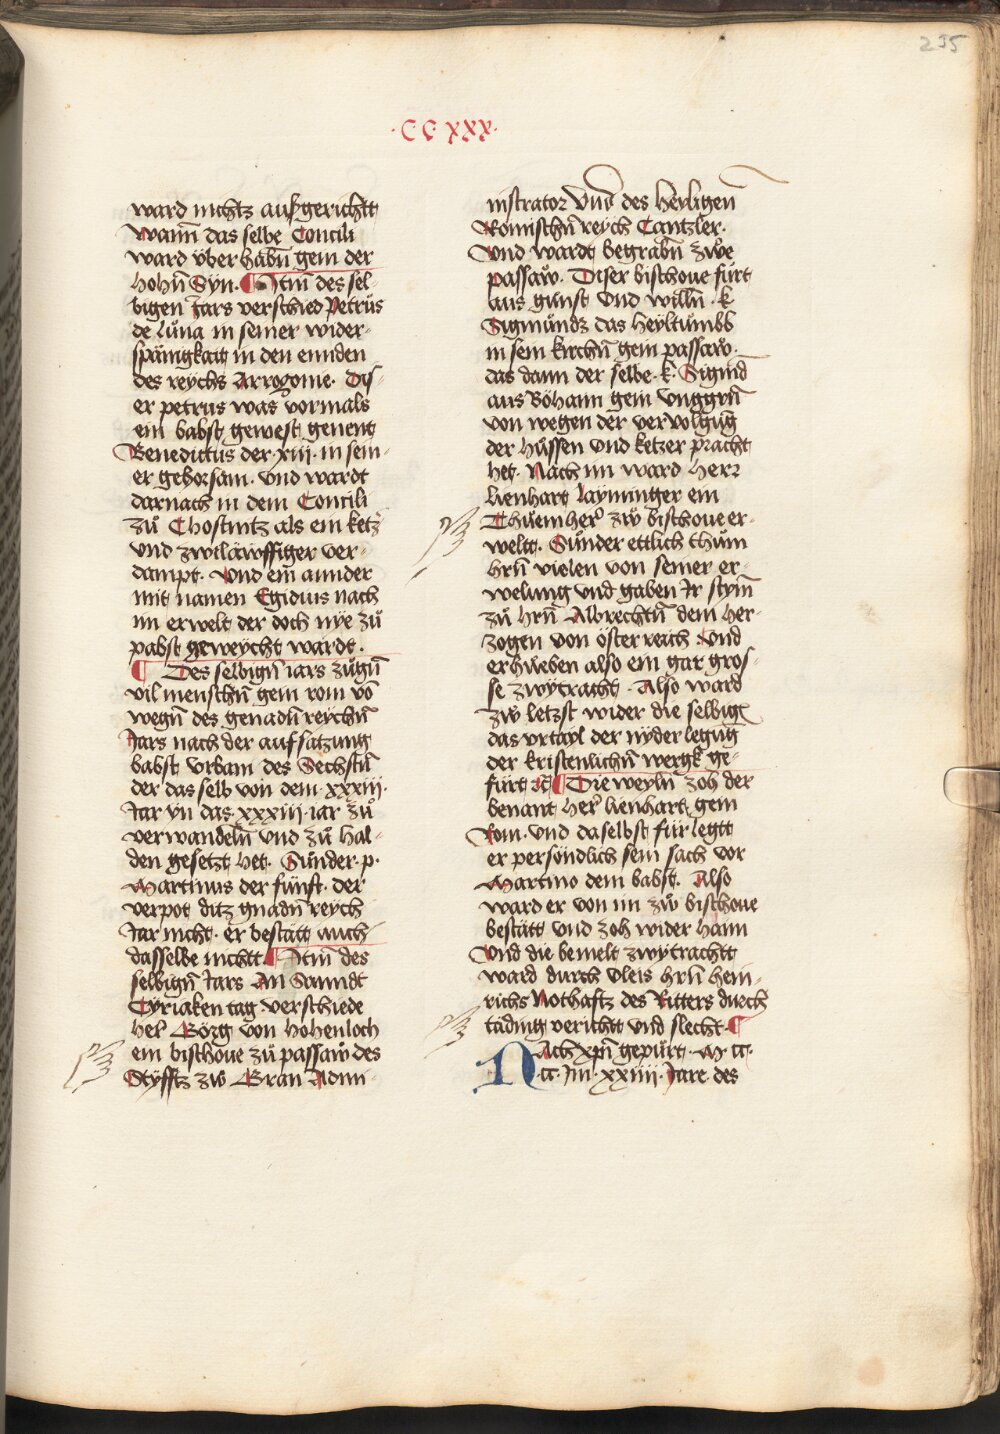 235
·CC xxx·
ward nichtz aufgerichtt
wann̄ das selbe Concili
ward v̈ber habn̄ gein der
hohn̄ Syn· ¶ Itm̄ des sel-
bigen Jars verschied Petrus
de luna in seiner wider-
spänigkait in den ennden
des reychs Arrogonie· Dis-
er petrus was vormals
ein babst gewest genent
Benedictus der xiii· in sein-
er gehorsam· vnd wardt
darnach in dem Concili
zů Chostnitz als ein ketz̓
vnd zwiläwffiger ver-
dampt· vnd ein annder
mit namen Egidius nach
im erwelt der doch nye zů
pabst geweycht wardt·
¶ Des selbign̄ iars zůgn̄
vil menschn̄ gein rom vō
wegn̄ des genadn̄reychn̄
Jars nach der aufsatzung
babst vrbani des Sechstn̄
der das selb von dem· xxxiii·
Jar yn das xxxiiii· iar zů
verwandeln̄ vnd zů hal-
den gesetzt het· Sunder· p·
Martinus der fünft· der
verpot ditz gnadn̄ reych
Jar nicht· er bestätt auch
dasselbe nichtt ¶ Itm̄ des
selbign̄ Jars An Sanndt
Cyriaken tag verschiede
her̓ Görg von hohenloch
ein bischoue zů passaw des
Styfftz zw Gran Admi-
nistrator Vnd des heyligen̄
Römischn̄ reych Cantzler·
Vnd wardt begrabn̄ zwe
passaw· Diser bischoue fürt
aus gunst vnd willn̄· k
Sigmundz das heyltumbb
in sein kirchn̄ gein passaw·
das dann der selbe· k· Sigmd̄
aus Böhann gein vnggrn̄
von wegen der vervolguḡ
der hussen vnd ketzer pracht
het· Nach im ward herr
lienhart layminger ein
Thuemher̓ zw bischoue er-
weltt· Sunder ettlich thum
hrn̄ vielen von seiner er-
welung vnd gaben Ir stym̄
zů hrn̄ Albrechtn̄ dem her-
zogen von österreich· Vnd
erhueben also ein gar gros-
se zwytracht· Also ward
zw letzst wider die selbiḡ
das vrtayl der nyderleguḡ
der kristenlichn̄ wergk ge-
fürt ꝛc̄ ¶ Die weyln̄ zoh der
benant her̓ lienhart gein
Rom· vnd daselbst für legtt
er persöndlich sein sach vor
Martino dem babst· Also
ward er von im zw bischoue
bestätt vnd zoh wider haim
Vnd die bemelt zwytrachtt
ward durch vleis hrn̄ hein-
richs Nothaftz des Ritters durch
täding verichtt vnd slecht· ¶
NAch xpn̄ gepurt· M· cc·
·cc· Im· xxiiii· Jare des